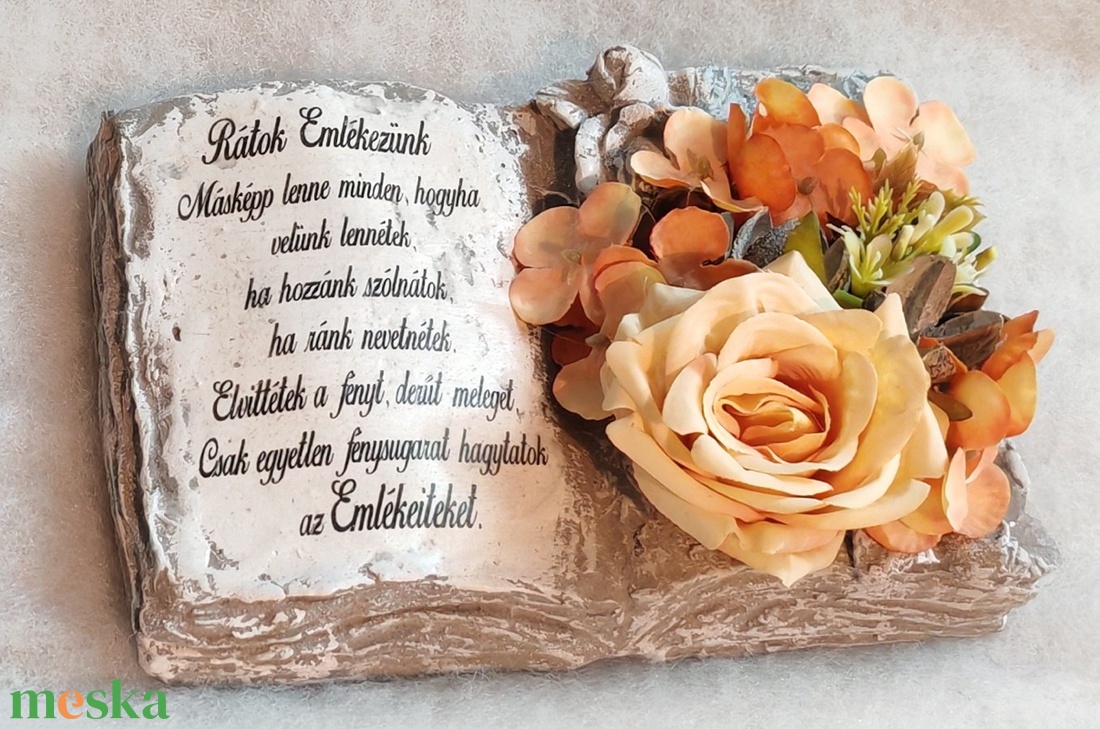 Rátok Emlékezünk
Másképp lenne minden, hogyha
velünk lennétek,
ha hozzánk szólnátok,
ha ránk nevetnétek.
Elvittétek a fényt, derűt meleget,
Csak egyetlen fénysugarat hagytatok
az Emlékeiteket.
meska